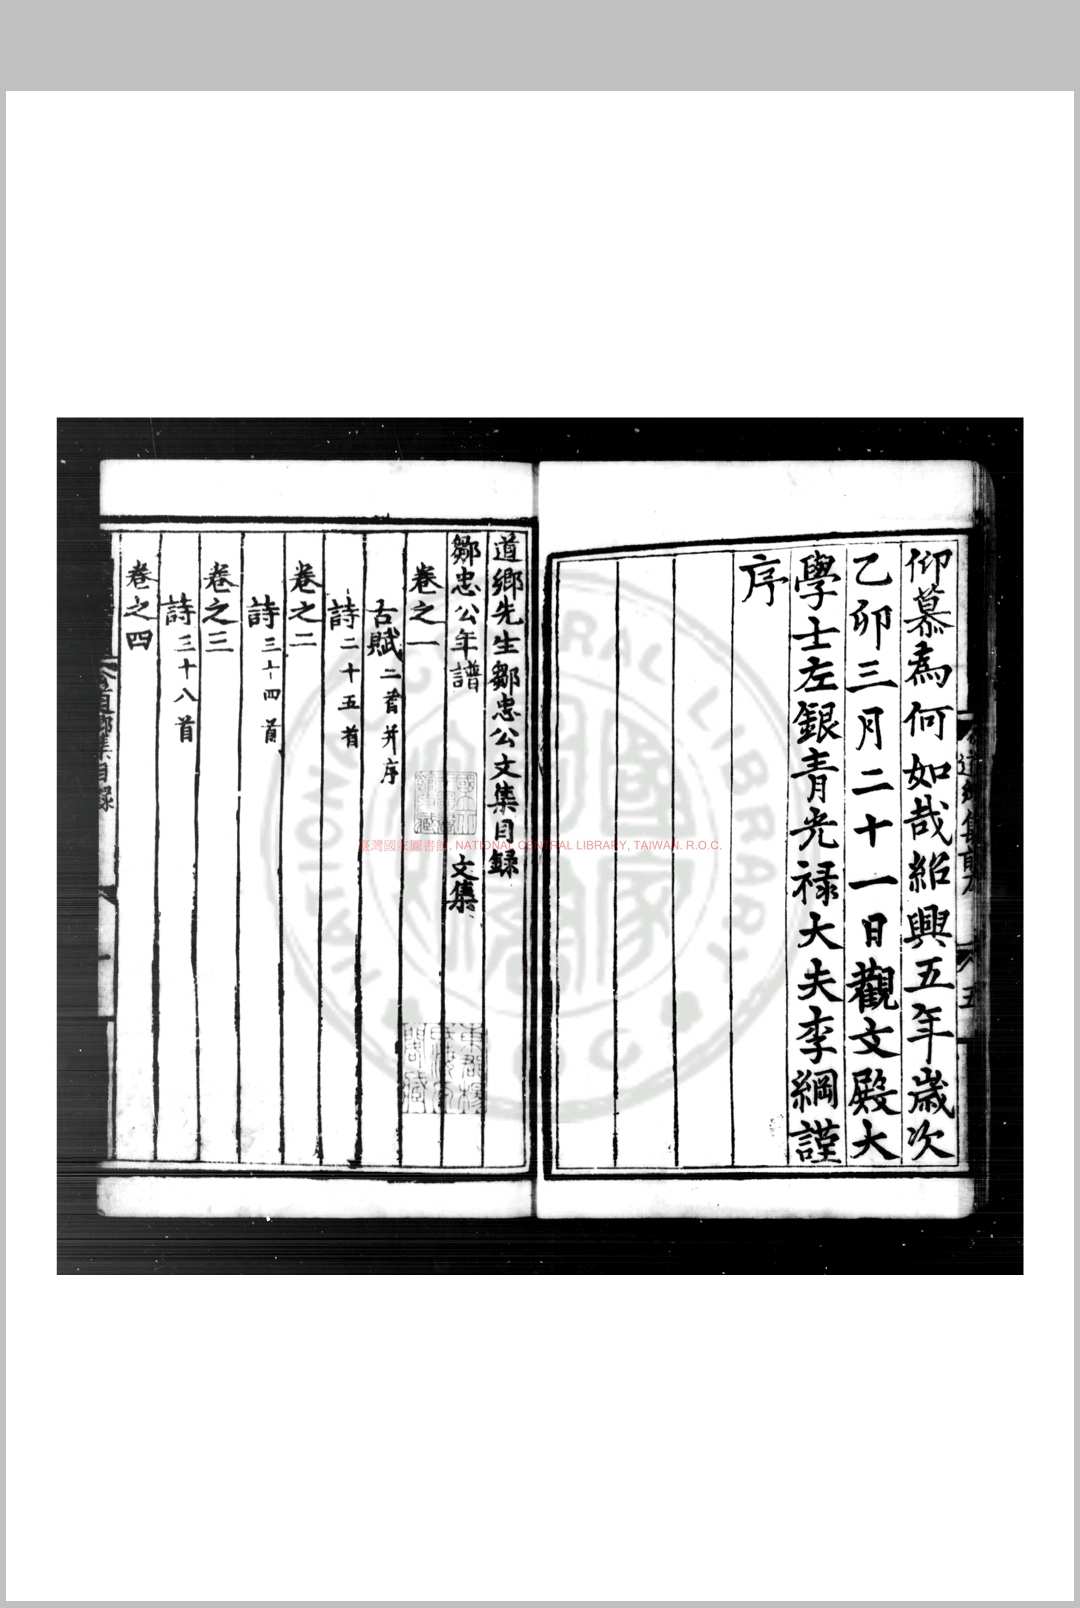 仰慕為何如哉紹興五年歲次
乙卯三月二十一日觀文殿大
學士左銀青光禄大夫李綱謹
序
道鄉先生鄒忠公文集目録
鄒忠公年譜 文集
卷之一
古賦二首并序
詩二十五首
卷之二
詩三十四首
卷之三
詩三十八首
卷之四
道鄉集目録
臺灣國家圖書館, NATIONAL CENTRAL LIBRARY, TAIWAN. R.O.C.